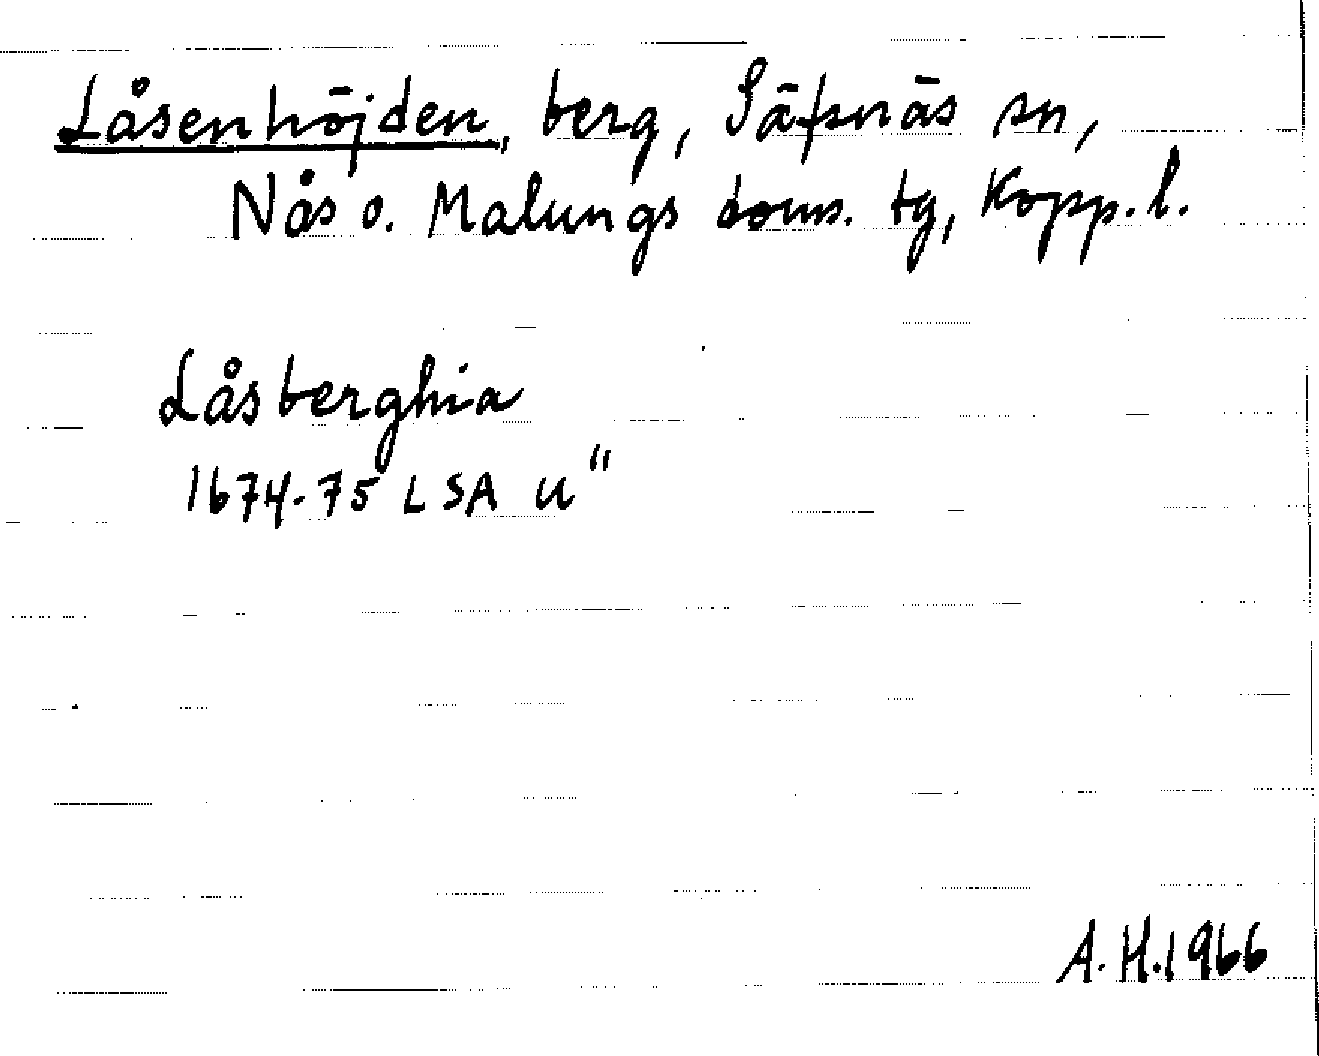 Låsenhöjden, berg, Säfsnäs sn,
Nås o. Malungs doms. tg, Kopp. l.
Låsberghia
1674-75 LSA u"
A. H. 1966